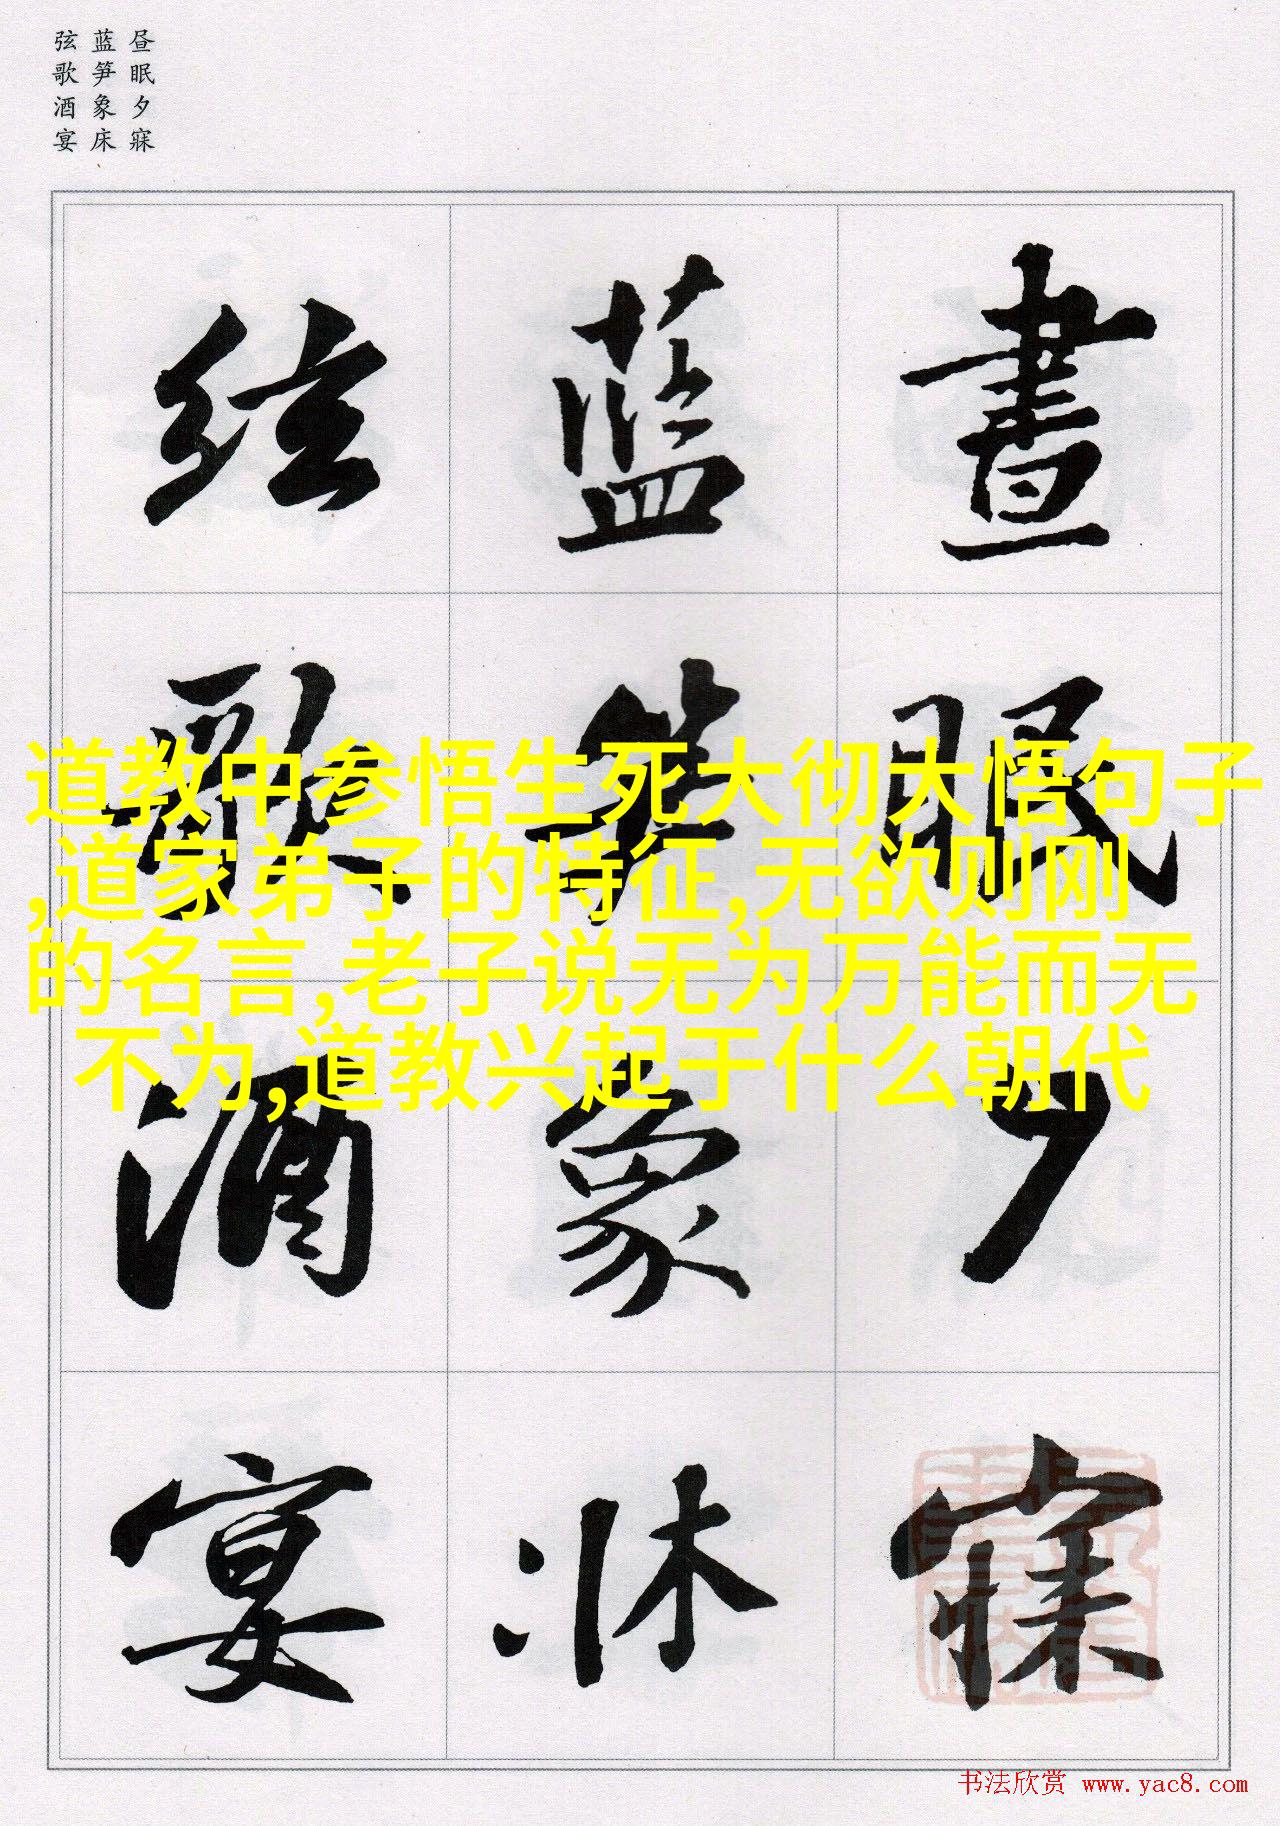 昼眠夕寐
蓝笋象床
弦歌酒宴
晝眠夕寐
藍笋象牀
絃歌酒宴
道教中参悟生死大彻大悟句子
,道家弟子的特征,无欲则刚
的名言,老子说无为万能而无
不为,道教兴起于什么朝代
书法欣赏 www.yac8.com